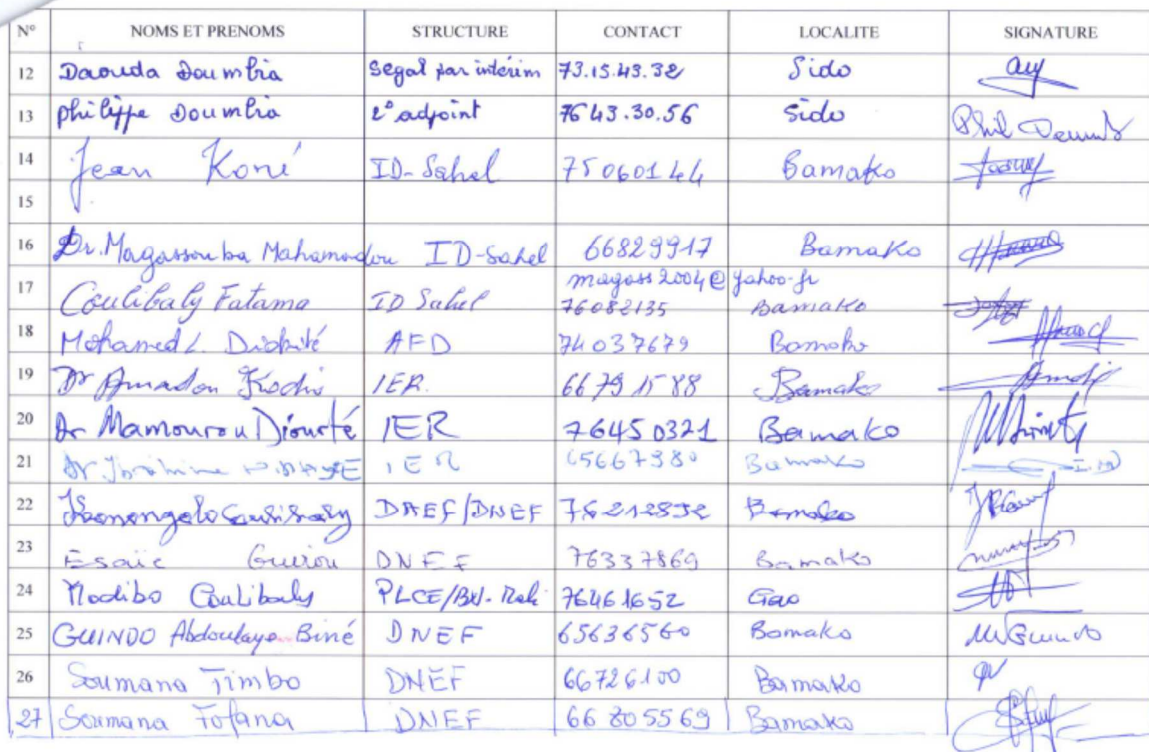 N° NOMS ET PRENOMS STRUCTURE CONTACT LOCALITE SIGNATURE
12 Daouda Doumbia Segal par intérim 73.15.43.32 Sido
13 philippe Doumbia 2° adjoint 76 43.30.56 Sido
14 Jean Koné ID-Sahel 75060144 Bamako
15
16 Dr. Magassouba Mahamadou ID-Sahel 66829917 Bamako
magass2004@yahoo.fr
17 Coulibaly Fatama ID Sahel 76082135 Bamako
18 Mohamed L. Diakité AFD 74037679 Bamako
19 Dr Amadou Kodio IER. 66791588 Bamako
20 Dr Mamourou Diourté IER 76450321 Bamako
21 Dr IER 65667380 Bamako
22 Coulibaly DAEF/DNEF Bamako
23 Esaïe Guirou DNEF 76337869 Bamako
24 Modibo Coulibaly PLCE/BN-Mali 76461652 Gao
25 GUINDO Abdoulaye Biné DNEF 65636560 Bamako
26 Soumana Timbo DNEF 66726100 Bamako
27 Soumana Fofana DNEF 66805569 Bamako